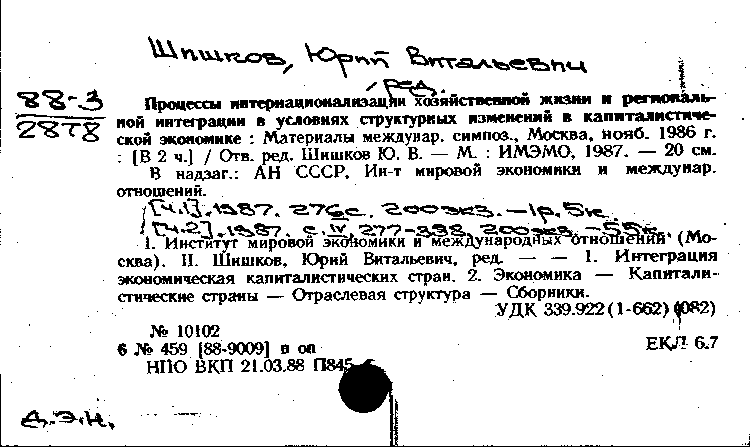 Шишков, Юрий Витальевич
ред.
88-3
2878
Процессы интернационализации хозяйственной жизни и региональ-
ной интеграции в условиях структурных изменений в капиталистиче-
ской экономике : Материалы междунар. симпоз., Москва, нояб. 1986 г.
: [В 2 ч.] / Отв. ред. Шишков Ю. В. — М. : ИМЭМО, 1987. — 20 см.
В надзаг.: АН СССР, Ин-т мировой экономики и междунар.
отношений.
[Ч.1]. 1987. 276с. 200экз. — 1р.5к.
[Ч.2]. 1987. с. IV, 277-338. 200экз. — 55к.
1. Институт мировой экономики и международных отношений (Мо-
сква). II. Шишков, Юрий Витальевич, ред. — — 1. Интеграция
экономическая капиталистических стран. 2. Экономика — Капитали-
стические страны — Отраслевая структура — Сборники.
УДК 339.922(1-662)(082)
№ 10102
6 № 459 [88-9009] п оп
ЕКЛ 6.7
НПО ВКП 21.03.88 П845
Д.Э.Н.